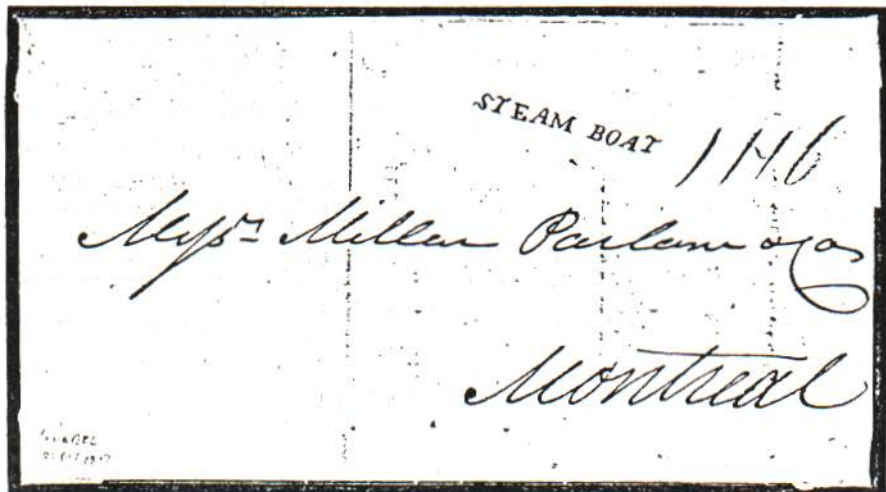 STEAM BOAT
1 H 6
Messrs Millar Parlane & Co
Montreal